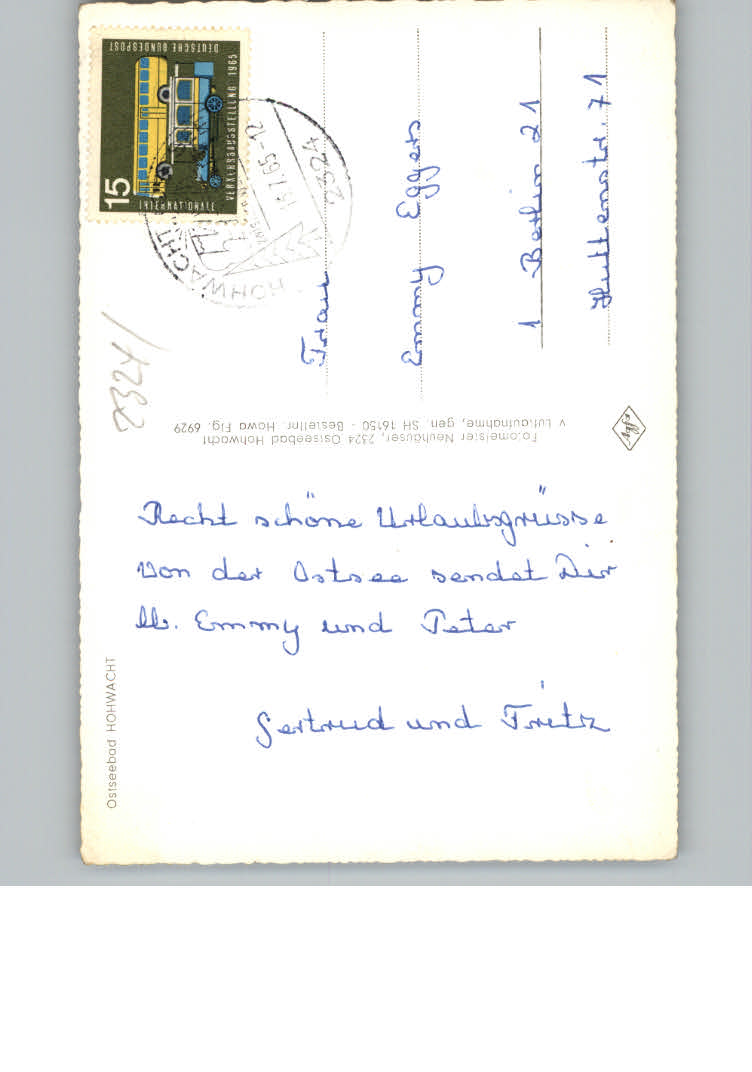 Recht schöne Urlaubsgrüsse
von der Ostsee sendet Dir
lb. Emmy und Peter
Gertrud und Fritz
Frau
Emmy Eggers
1 Berlin 21
Huttenstr. 71
Ostseebad HOHWACHT
Fotomeister Neuhäuser, 2324 Ostseebad Hohwacht
v Luftaufnahme, gen. SH 16150 - Bestellnr. Howa Flg. 6929
2324/
DEUTSCHE BUNDESPOST
VERKERSAUSSTELLUNG 1965
15
2324
HOHWACHT